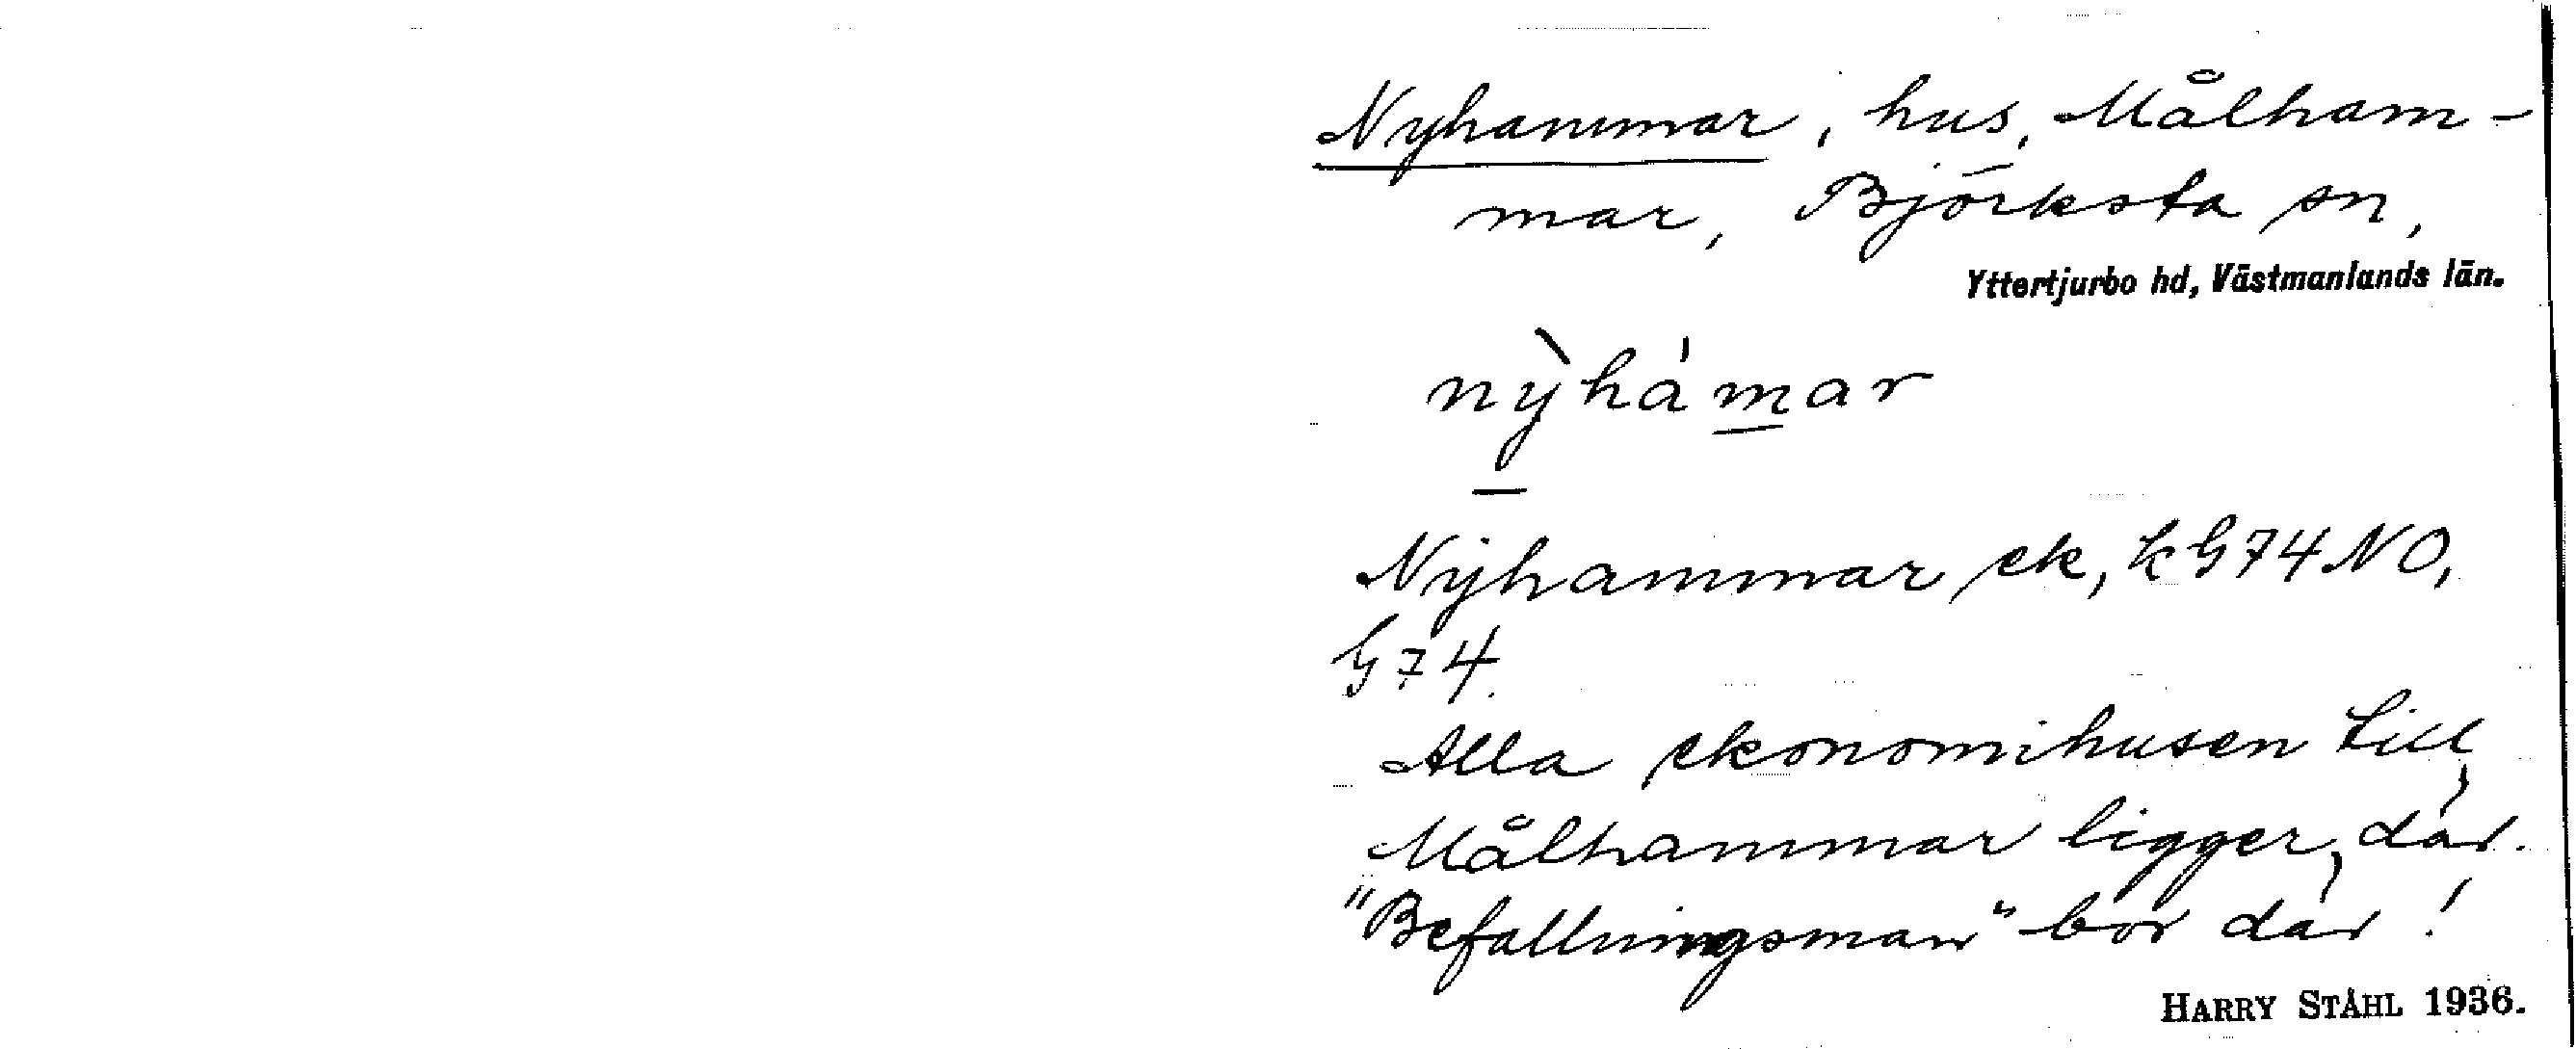 Nyhammar, hus, Målham-
mar, Björksta sn,
Yttertjurbo hd, Västmanlands län.
nỳhámar
Nyhammar ek, k G74 NO,
G74.
Alla ekonomihusen till
Målhammar ligger där.
"Befallningsman" bor där!
HARRY STÅHL 1936.